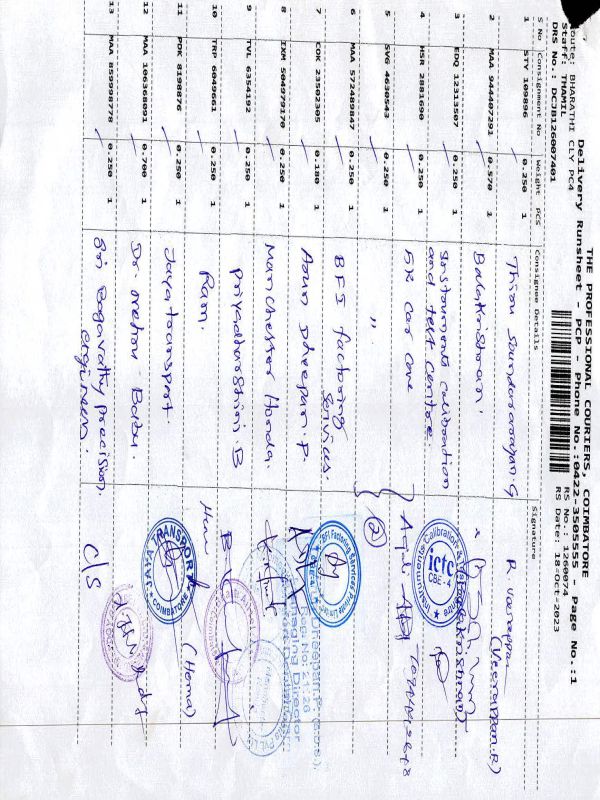 THE PROFESSIONAL COURIERS, COIMBATORE
Delivery Runsheet - PCP - Phone No.:0422-3505555 - Page No.:1
Route: BHARATHI CLY PC4
Staff: THAMIL
DRS No.: DCJB126007401
RS No.: 1260074
RS Date: 18-Oct-2023
S No Consignment No Weight PCS Consignee Details Signature
1 STY 109896 0.250 1 Thiru Soundararajan G R. Veerappan
(Veerappan.R)
2 MAA 944407292 0.570 1 Balakrishnan
3 EDQ 12313507 Instruments calibration
and test Centre
Instruments Calibration & Test Centre
ICTC
CBE-4
4 HSR 2881690 0.250 1 5K Car Care
5 SVG 4630543 0.250 1 "
2
6 MAA 572489847 0.250 1 BFSI factoring
Services.
BFSI Factoring Services Private Limited
7 COK 23502305 0.180 1 Arun Dheepan.P.
Dheepan.P
Reg No: 2126
Managing Director
8 IXM 504979170 0.250 1 Manchester Honda
9 TVL 6354192 0.250 1 Priyadharshini B
10 TRP 6049661 0.250 1 Ram
11 PDK 8198876 0.250 1 Jaya transport
JAYA TRANSPORT
COIMBATORE
Hema
(Hema)
12 MAA 106368091 0.700 1 Dr. Babu
13 MAA 859998778 0.250 1 Sri Bagavathy precision
engineers.
C/S